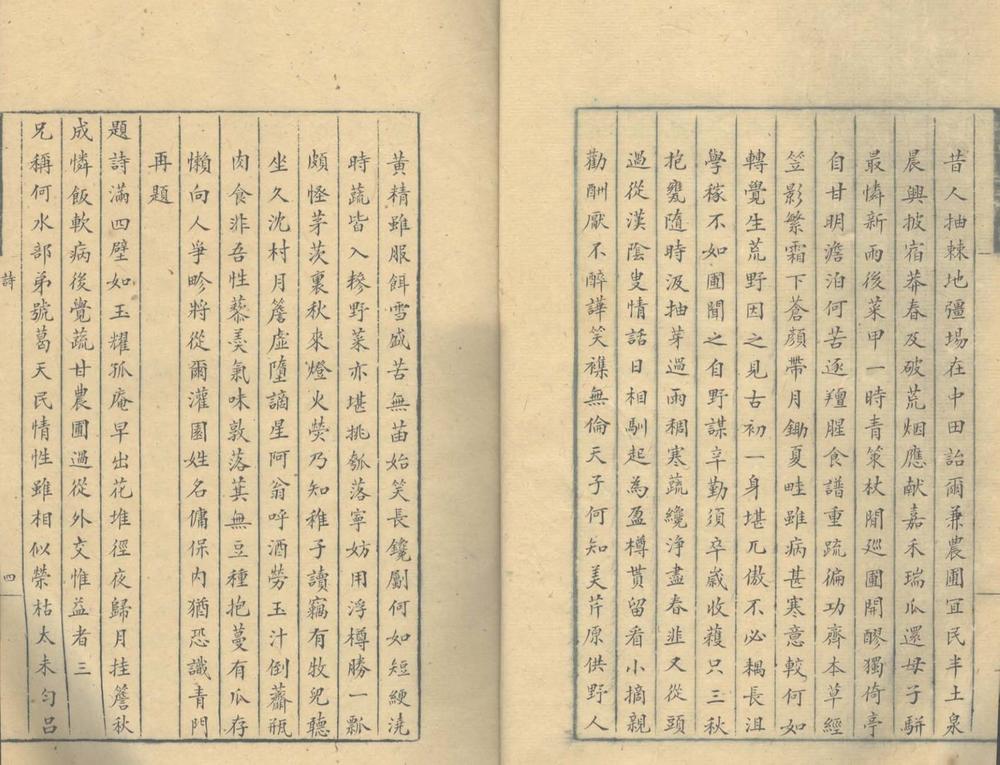 昔人抽棘地彊埸在中田詒爾兼農圃冝民半土泉
晨興披宿莽春及破荒烟應献嘉禾瑞瓜還母子駢
最憐新雨後菜甲一時青策杖閒廵圃開醪獨倚亭
自甘明澹泊何苦逐羶腥食譜重䟽徧功齊本草經
笠影繁霜下蒼顏帶月鋤夏畦雖病甚寒意較何如
轉覺生荒野因之見古初一身堪兀傲不必耦長沮
學稼不如圃聞之自野謀辛勤須卒嵗收穫只三秋
抱甕隨時汲抽芽過雨稠寒蔬纔浄盡春韭又從頭
過從漢隂叟情話日相馴起為盈樽貰留看小摘親
勸酬厭不醉譁笑襍無倫天子何知美芹原供野人
黃精雖服餌雪盛苦無苗始笑長鑱劚何如短綆澆
時蔬皆入糝野菜亦堪挑瓠落寧妨用浮樽勝一瓢
頗怪茅茨裏秋來燈火熒乃知稚子讀竊有牧兒聽
坐久沈村月簷虛墮謫星阿翁呼酒勞玉汁倒虀瓶
肉食非吾性藜羮氣味敦落萁無豆種抱蔓有瓜存
懶向人爭畛將從爾灌園姓名傭保内猶恐識青門
再題
題詩滿四壁如玉耀孤庵早出花堆徑夜歸月挂簷秋
成憐飯軟病後覺蔬甘農圃過從外交惟益者三
兄稱何水部弟號葛天民情性雖相似榮枯太未匀呂
詩
四